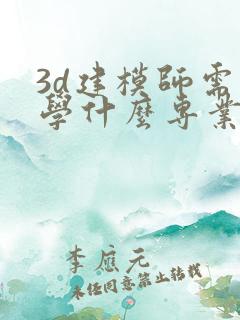 3d建模師需
學什麼專業
李應元
未經同意禁止轉載